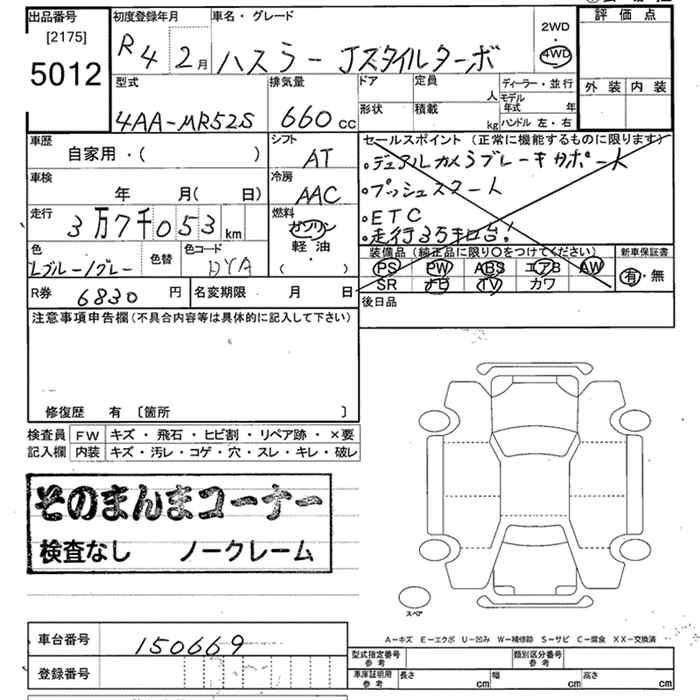 出品番号
[2175]
5012
初度登録年月
R4 2月
車名・グレード
ハスラー Jスタイルターボ
2WD
・
4WD
評価点
外装 内装
型式
4AA-MR52S
排気量
660 cc
ドア
形状
定員
人
積載
kg
ディーラー・並行
モデル年式 年
ハンドル 左・右
車歴
自家用・( )
シフト
AT
セールスポイント (正常に機能するものに限ります)
・デュアルカメラブレーキサポート
・プッシュスタート
・ETC
・走行3万キロ台!
車検
年 月( 日)
冷房
AAC
走行
3万7千053km
燃料
ガソリン
軽油・
( )
色
Lブルー/グレー
色替
色コード
DYA
装備品 (純正品に限り〇をつけてください)
PS PW ABS エアB AW
SR ナビ TV カワ
新車保証書
有・無
R券 6830 円
名変期限 月 日
後日品
注意事項申告欄(不具合内容等は具体的に記入して下さい)
修復歴 有 [箇所 ]
検査員
記入欄
FW キズ・飛石・ヒビ割・リペア跡・×要
内装 キズ・汚レ・コゲ・穴・スレ・キレ・破レ
そのまんまコーナー
検査なし ノークレーム
スペア
A-キズ E-エクボ U-凹み W-補修跡 S-サビ C-腐食 XX-交換済
車台番号 150669
登録番号
型式指定番号
参考
類別区分番号
参考
車庫証明用
参考
長さ cm
幅 cm
高さ cm